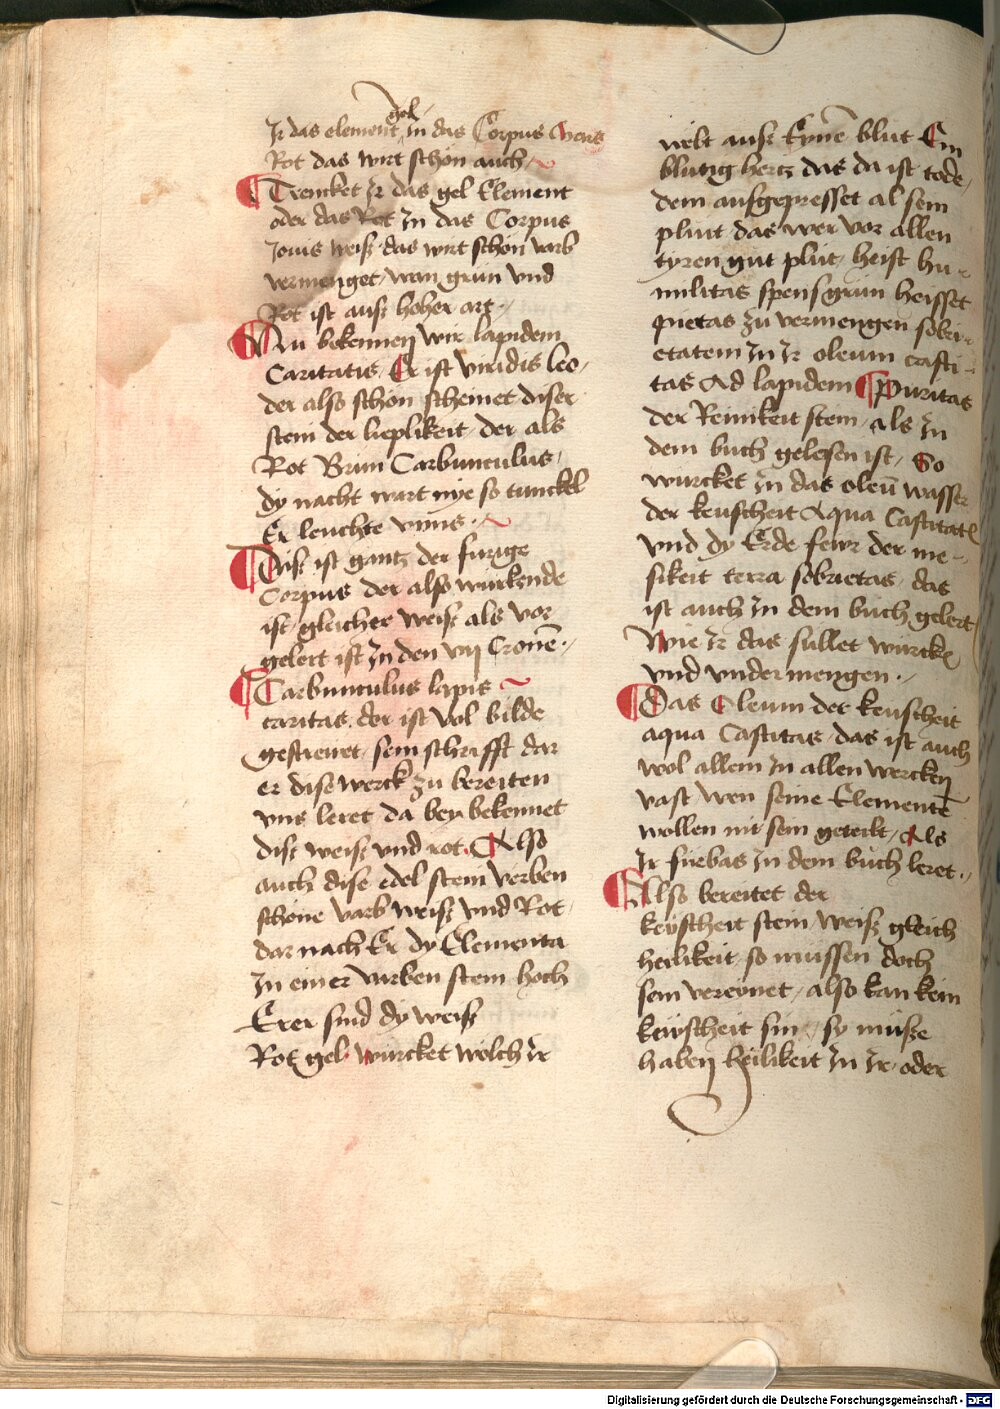 gel
Ir das element in das Corpus
Rot das wirt schon auch
Trencket Ir das gel Element
oder das Rot In das Corpus
Jouis weiß das wirt schon varb
vermenget, wan grun vnd
Rot ist auß hoher art.
Nu bekennen wir lapidem
Caritatis, Er ist viridis leo,
der also schon scheinet diser
stein der lieplikeit, der als
Rot Brun Carbunculus,
dy nacht wart nye so tunckel
Er leuchte vmms.
Diß ist gantz der furige
Corpus der also würkende
ist, gleicher weiß als vor
gelert ist In den vij Cronē.
Carbunculus lapis
caritas, der ist vol bilde
gestreuet, sein schrifft dar
er dise werck zu bereiten
vns leret da bey bekennet
diß weiß vnd rot. Also
auch dise edel stein verben
schone varb weiß vnd Rot,
dar nach Er dy Elementa
In einer varben stein hoch
Erer sind dy weiß
Rot gel. würcket wolch Ir
welt auß Eynē blut Ein
blutig hertz das da ist tode,
dem außgepresset al sein
plut das wer vor allen
tyren gut plut, heist hu-
militas spensgrun heisset
pietas zu vermengen sobri-
etatem In Ir oleum casti-
tas Ad lapidem Puritas
der Reinikeit stein, als In
dem buch gelesen ist, So
wurcket In das oleū wasser
der keuscheit Aqua Castitatis
vnd dy Erde fewr der me-
sikeit terra sobrietas, das
ist auch In dem buch gelert
Wie Ir das sullet wurckē
vnd vndermengen.
Das Oleum der keuscheit
aqua Castitas, das ist auch
wol allein In allen wercken
vast, wen seine Elementē
wollen nit sein geteilt, Als
Ir furbas In dem buch leret.
Also bereitet der
keüscheit stein weiß gleich
heilikeit so mussen doch
sein vereynet, also kan kein
keüscheit sin, sy müße
haben heilikeit In Ir, oder
Digitalisierung gefördert durch die Deutsche Forschungsgemeinschaft - DFG